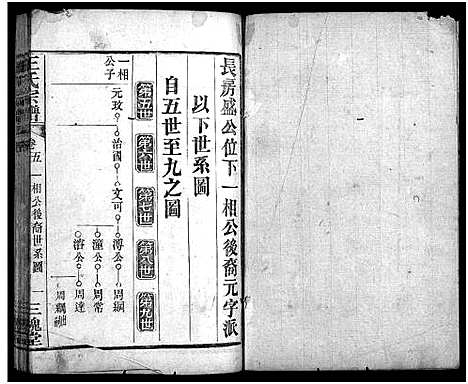 長房盛公位下一相公後裔元字派
以下世系圖
自五世至九之圖
第五世 第六世 第七世 第八世 第九世
一相公子
元政 治國 文可 溥公 周綱
潼公 周常
溶公 周達
王氏宗譜 卷五 一相公後裔世系圖 一 三槐堂